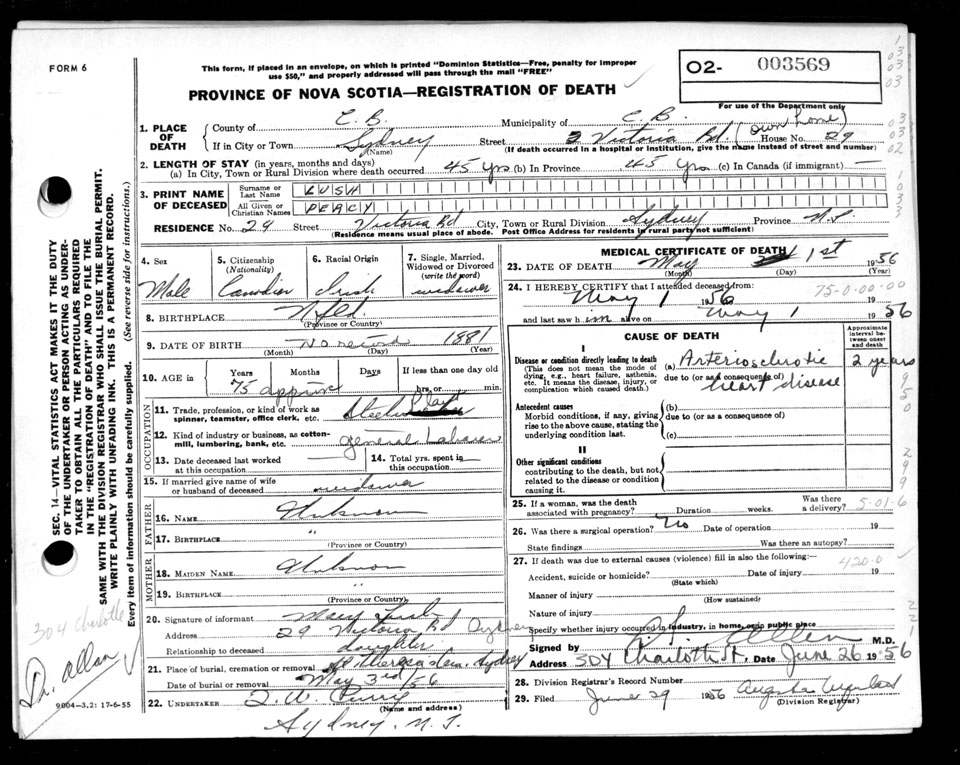 FORM 6
This form, if placed in an envelope, on which is printed "Dominion Statistics—Free, penalty for improper
use $50," and properly addressed will pass through the mail "FREE"
O2- 003569
PROVINCE OF NOVA SCOTIA—REGISTRATION OF DEATH
For use of the Department only
1. PLACE OF DEATH
County of C. B. Municipality of C. B.
If in City or Town Sydney Street 2 Victoria Rd. (own home) House No. 29
(Name) (If death occurred in a hospital or institution, give the name instead of street and number)
2. LENGTH OF STAY (in years, months and days)
(a) In City, Town or Rural Division where death occurred 45 yrs (b) In Province 45 yrs (c) In Canada (if immigrant) —
3. PRINT NAME OF DECEASED
Surname or Last Name LUSH
All Given or Christian Names PERCY
RESIDENCE No. 29 Street Victoria Rd City, Town or Rural Division Sydney Province N.S
(Residence means usual place of abode. Post Office Address for residents in rural parts not sufficient)
4. Sex Male
5. Citizenship (Nationality) Canadian
6. Racial Origin Irish
7. Single, Married, Widowed or Divorced (write the word) widower
8. BIRTHPLACE Nfld.
(Province or Country)
9. DATE OF BIRTH No record 1881
(Month) (Day) (Year)
10. AGE in Years Months Days If less than one day old
75 approx hrs. or min.
OCCUPATION
11. Trade, profession, or kind of work as spinner, teamster, office clerk, etc. Steel Plant
12. Kind of industry or business, as cotton-mill, lumbering, bank, etc. general Labourer
13. Date deceased last worked at this occupation
14. Total yrs. spent in this occupation
15. If married give name of wife or husband of deceased widower
FATHER
16. NAME Unknown
17. BIRTHPLACE "
(Province or Country)
MOTHER
18. MAIDEN NAME Unknown
19. BIRTHPLACE "
(Province or Country)
20. Signature of informant Mary Lush
Address 29 Victoria Rd Sydney
Relationship to deceased daughter
21. Place of burial, cremation or removal Sydney
Date of burial or removal May 3rd/56
22. UNDERTAKER T. W.
(Name and address)
Sydney, N.S.
MEDICAL CERTIFICATE OF DEATH
23. DATE OF DEATH May 1st 1956
(Month) (Day) (Year)
24. I HEREBY CERTIFY that I attended deceased from: 75-0-00-00
May 1 1956 19
and last saw him alive on May 1 1956
CAUSE OF DEATH
Approximate interval between onset and death
I
Disease or condition directly leading to death
(This does not mean the mode of dying, e.g., heart failure, asthenia, etc. It means the disease, injury, or complication which caused death.)
(a) Arteriosclerotic 2 years
due to (or as a consequence of) heart disease
Antecedent causes
Morbid conditions, if any, giving rise to the above cause, stating the underlying condition last.
(b)
due to (or as a consequence of)
(c)
II
Other significant conditions
contributing to the death, but not related to the disease or condition causing it.
25. If a woman, was the death associated with pregnancy? Duration weeks. Was there a delivery? 5-01-6
26. Was there a surgical operation? No Date of operation 19
State findings Was there an autopsy?
27. If death was due to external causes (violence) fill in also the following:— 420-0
Accident, suicide or homicide? Date of injury 19
(State which)
Manner of injury
(How sustained)
Nature of injury
Specify whether injury occurred in industry, in home, or in public place
Signed by Allen M.D.
Address 304 Charlotte St. Date June 26 1956
28. Division Registrar's Record Number
29. Filed June 29 1956 Augusta
(Division Registrar)
SEC. 14—VITAL STATISTICS ACT MAKES IT THE DUTY
OF THE UNDERTAKER OR PERSON ACTING AS UNDER-
TAKER TO OBTAIN ALL THE PARTICULARS REQUIRED
IN THE "REGISTRATION OF DEATH" AND TO FILE THE
SAME WITH THE DIVISION REGISTRAR WHO SHALL ISSUE THE BURIAL PERMIT.
WRITE PLAINLY WITH UNFADING INK. THIS IS A PERMANENT RECORD.
Every item of information should be carefully supplied. (See reverse side for instructions.)
304 Charlotte
Dr. Allan
9004-3.2: 17-6-55